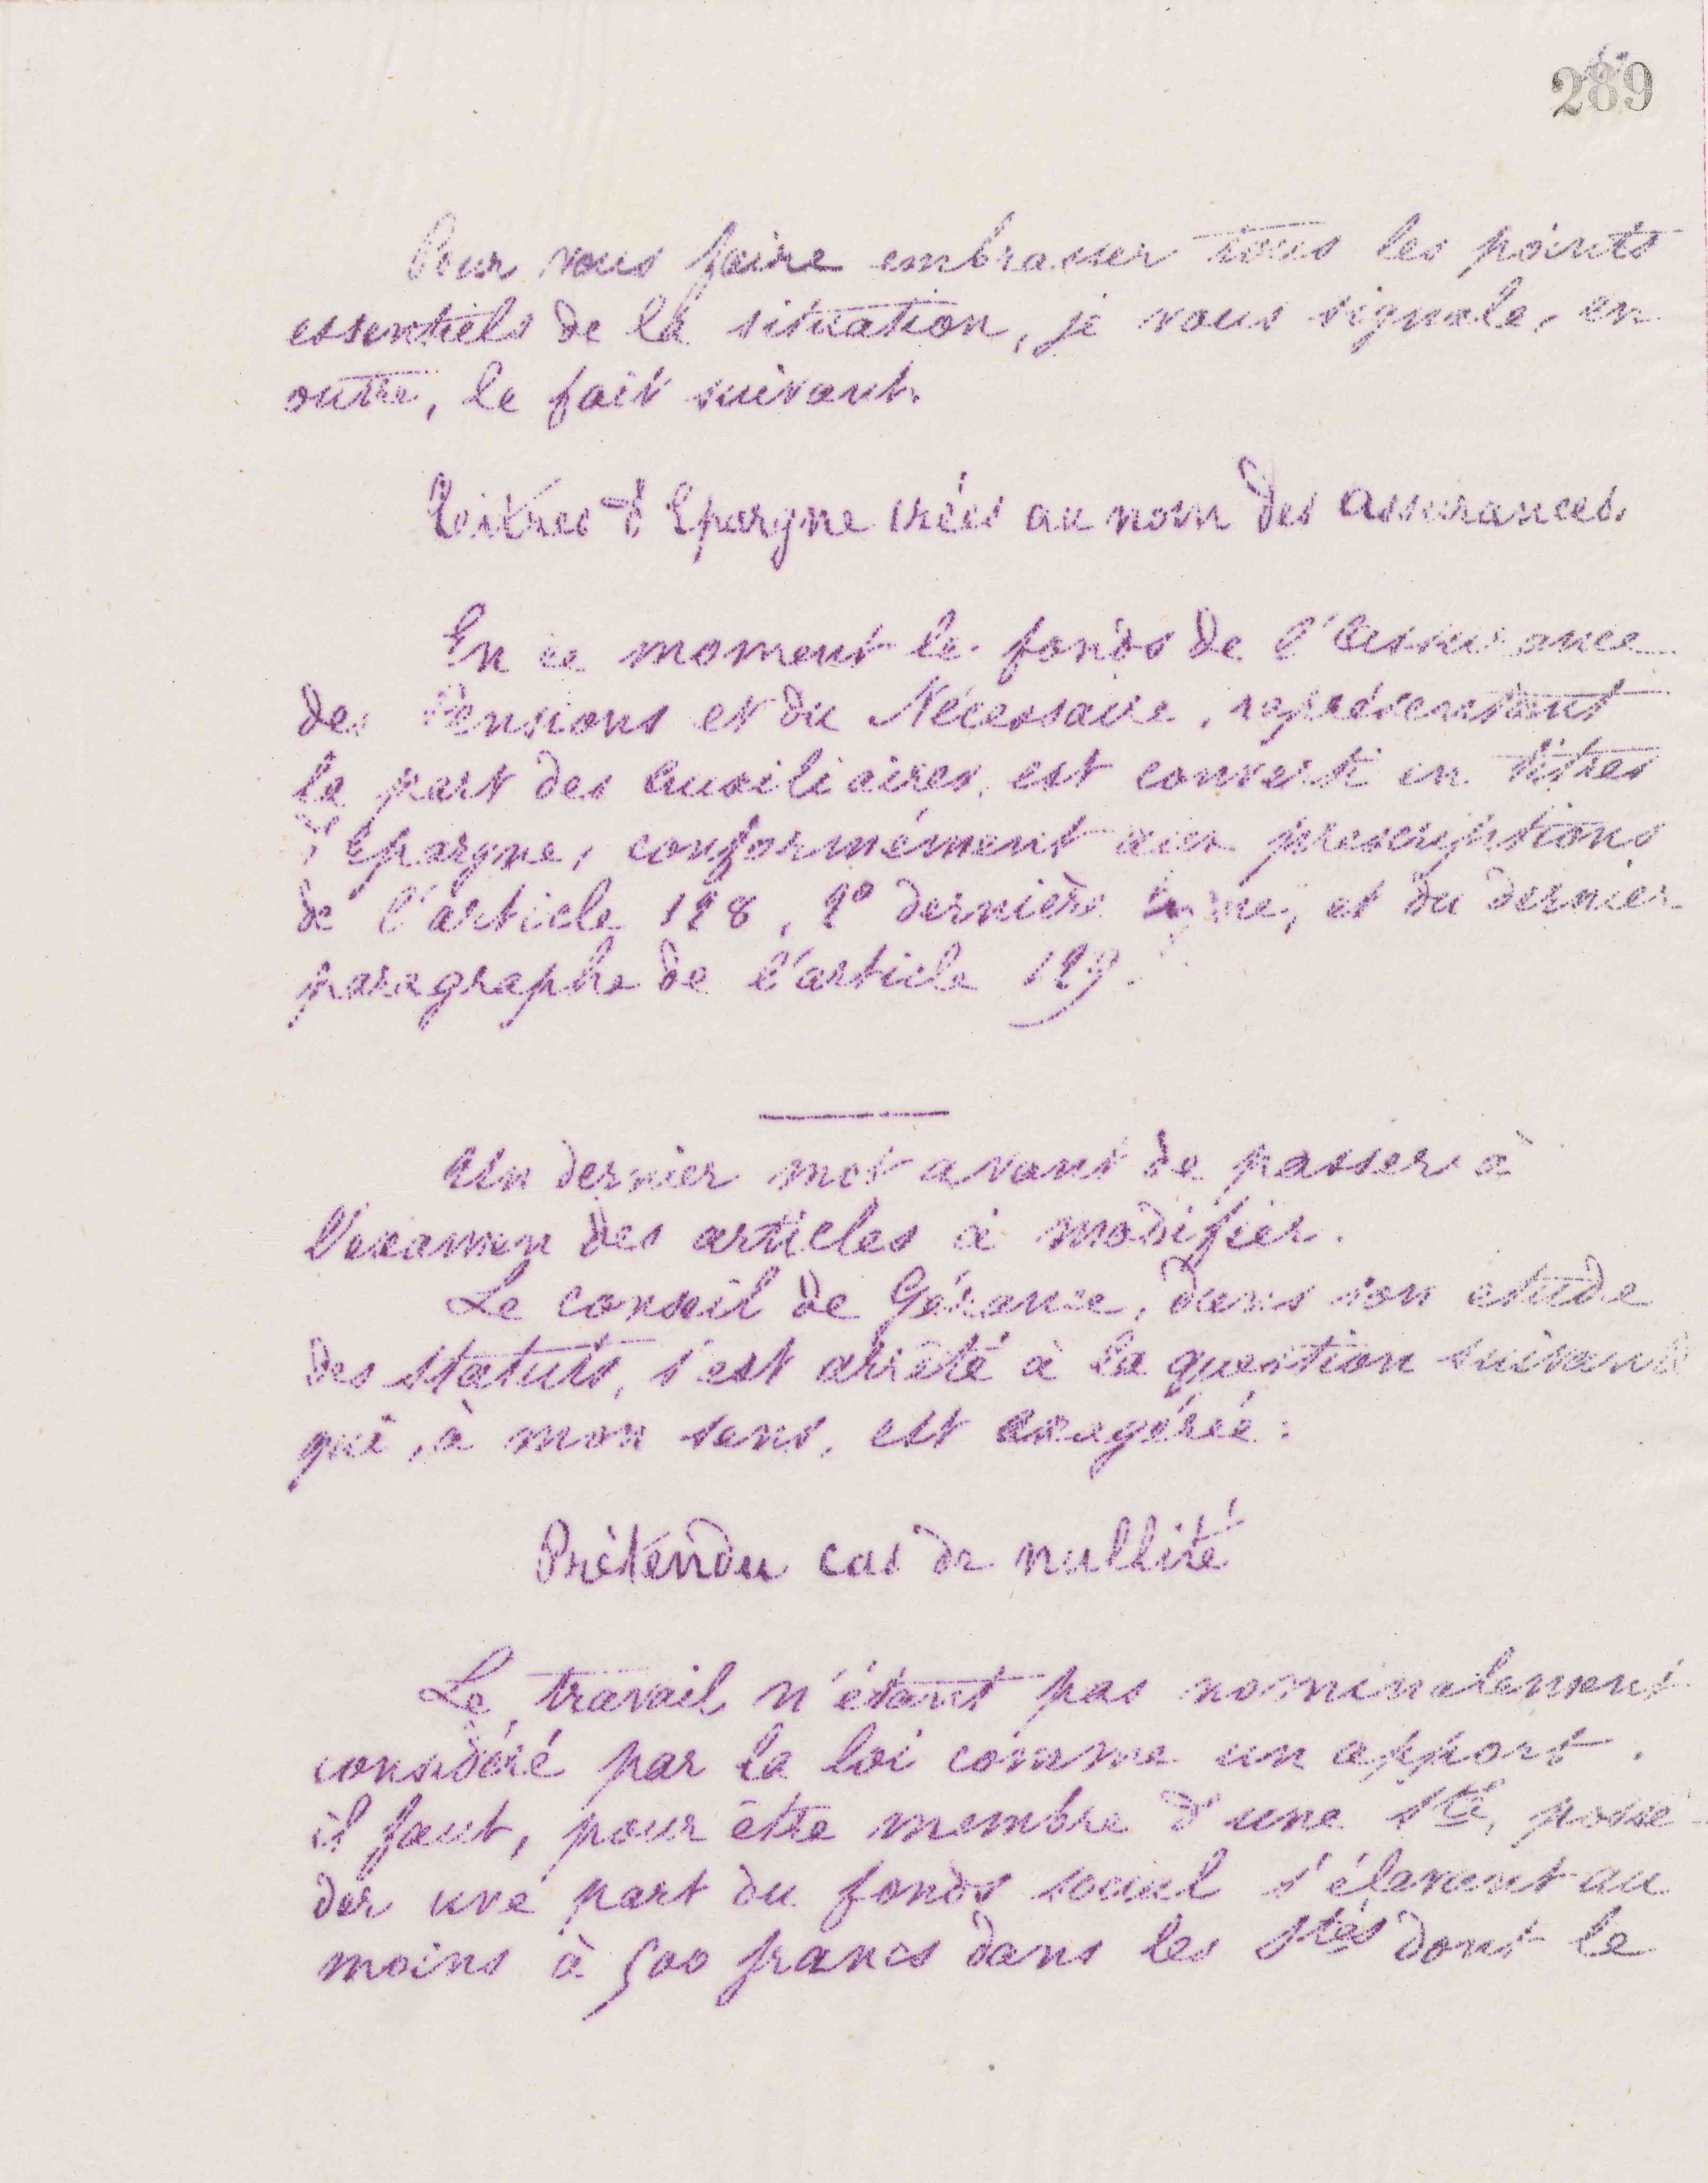 289
Pour vous faire embrasser tous les points
essentiels de la situation, je vous signale, en
outre, le fait suivant.
Titres d'Epargne créés au nom des assurances.
En ce moment le fonds de l'Assurance
des Pensions et du Nécessaire, représentant
la part des auxiliaires, est converti en titres
d'Epargne, conformément aux prescriptions
de l'article 128, 2° dernière ligne, et du dernier
paragraphe de l'article 129.
Un dernier mot avant de passer à
l'examen des articles à modifier.
Le conseil de Gérance, dans son etude
des statuts, s'est arrêté à la question suivante
qui, à mon sens, est exagérée:
Prétendu cas de nullité
Le travail n'étant pas nominalement
considéré par la loi comme un apport,
il faut, pour être membre d'une Sté, possé-
der une part du fonds social s'élevant au
moins à 500 francs dans les Stés dont le